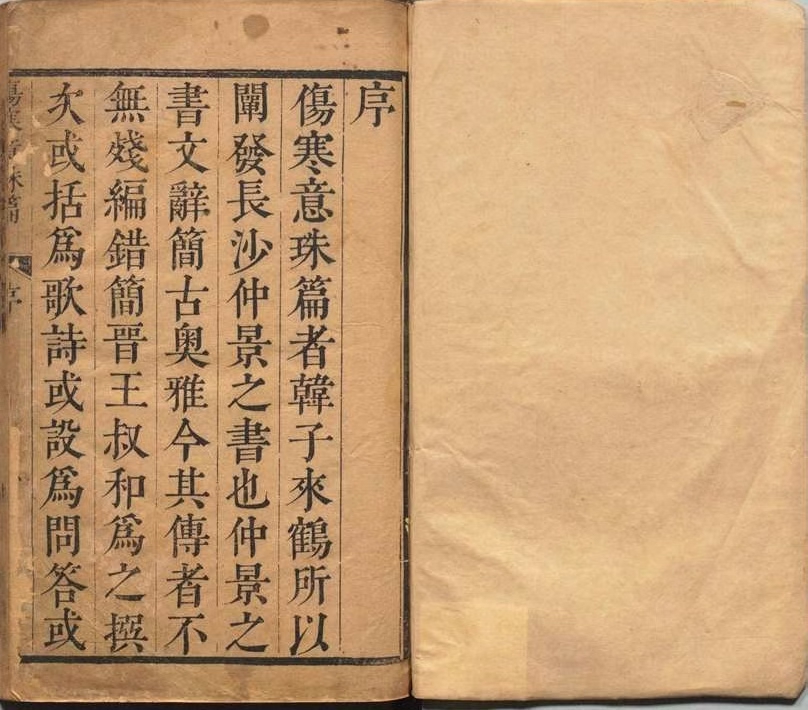 序
傷寒意珠篇者韓子來鶴所以
闡發長沙仲景之書也仲景之
書文辭簡古奥雅今其傳者不
無殘編錯簡晉王叔和爲之撰
次或括爲歌詩或設爲問答或
傷寒意珠篇 序